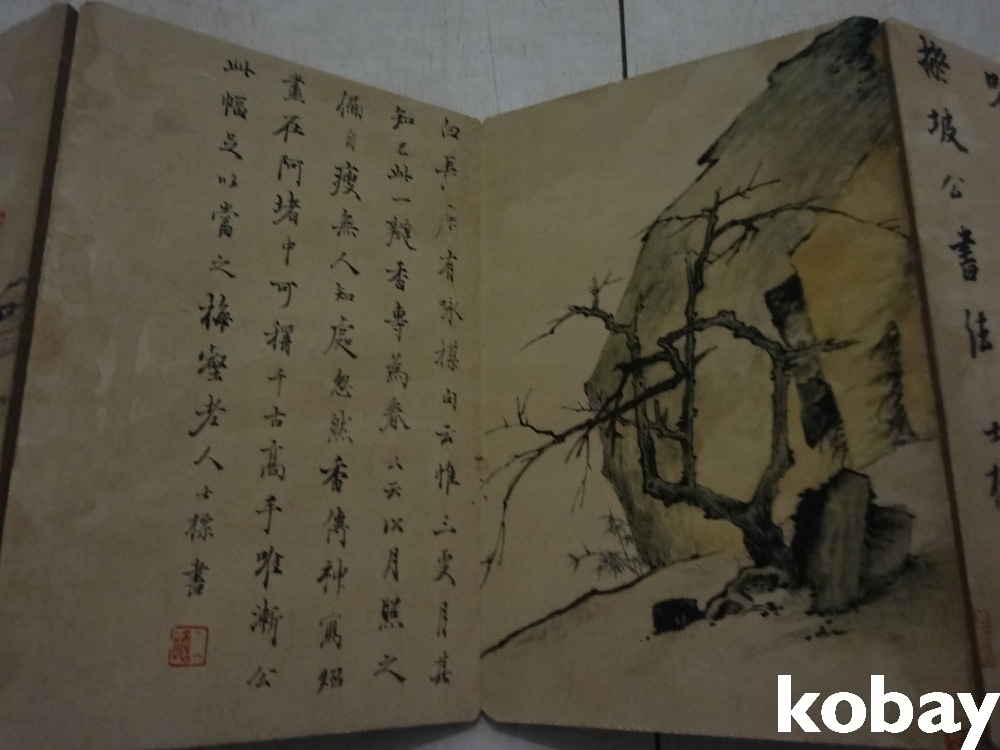 明
坡公書法 士標
有詠楳句云惟三更月其
知己此一瓣香專為春又云以月照之
偏自瘦無人知處忽然香傳神寫照
盡在阿堵中可稱千古高手唯漸公
此幅足以當之梅壑老人士標書
kobay